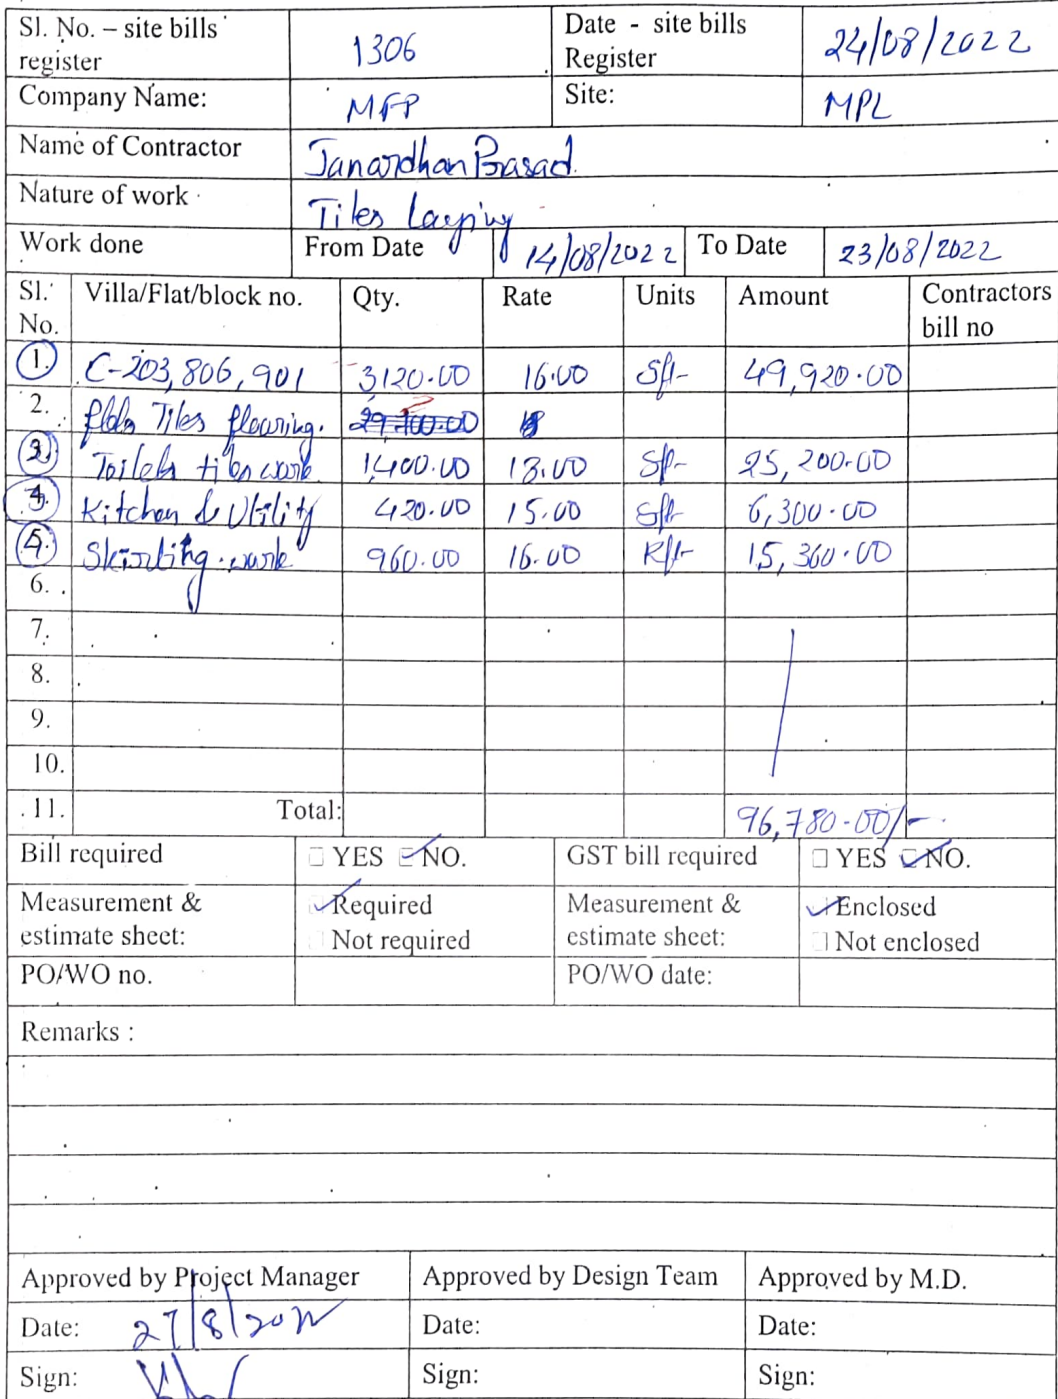 Sl. No. – site bills register 1306 Date - site bills Register 24/08/2022
Company Name: MFP Site: MPL
Name of Contractor Janardhan Prasad
Nature of work Tiles Laying
Work done From Date 14/08/2022 To Date 23/08/2022
Sl. No. Villa/Flat/block no. Qty. Rate Units Amount Contractors bill no
1. C-203, 806, 901 3120.00 16.00 Sft 49,920.00
2. Tiles flooring.
3. Toilets tiles work 1,400.00 18.00 Sft 25,200.00
4. Kitchen & Utility 420.00 15.00 Sft 6,300.00
5. Skirting work 960.00 16.00 Rft 15,360.00
6.
7.
8.
9.
10.
11. Total: 96,780.00/-
Bill required YES NO. GST bill required YES NO.
Measurement & estimate sheet: Required Not required Measurement & estimate sheet: Enclosed Not enclosed
PO/WO no. PO/WO date:
Remarks :
Approved by Project Manager Approved by Design Team Approved by M.D.
Date: 27/8/2022 Date: Date:
Sign: Sign: Sign: